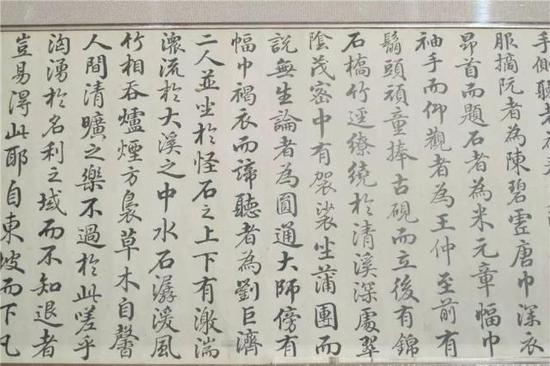 手側聽者
服摘阮者為陳碧虛唐巾深衣
昂首而題石者為米元章幅巾
袖手而仰觀者為王仲至前有
鬅頭頑童捧古硯而立後有錦
石橋竹逕繚繞於清溪深處翠
陰茂密中有袈裟坐蒲團而
說無生論者為圓通大師傍有
幅巾褐衣而諦聽者為劉巨濟
二人並坐於怪石之上下有激湍
潨流於大溪之中水石潺湲風
竹相吞爐煙方裊草木自馨
人間清曠之樂不過於此嗟乎
洶湧於名利之域而不知退者
豈易得此耶自東坡而下凡